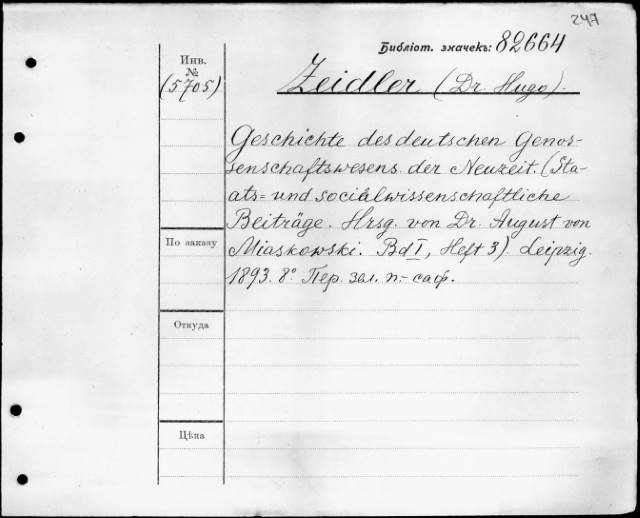 247
Библіот. значекъ: 82664
Инв.
№
(5705)
Zeidler (Dr. Hugo).
Geschichte des deutschen Genos-
senschaftswesens der Neuzeit. (Sta-
ats- und socialwissenschaftliche
Beiträge. Hrsg. von Dr. August von
Miaskowski. Bd I, Heft 3). Leipzig.
1893. 8° Пер. зел. п.-саф.
По заказу
Откуда
Цѣна